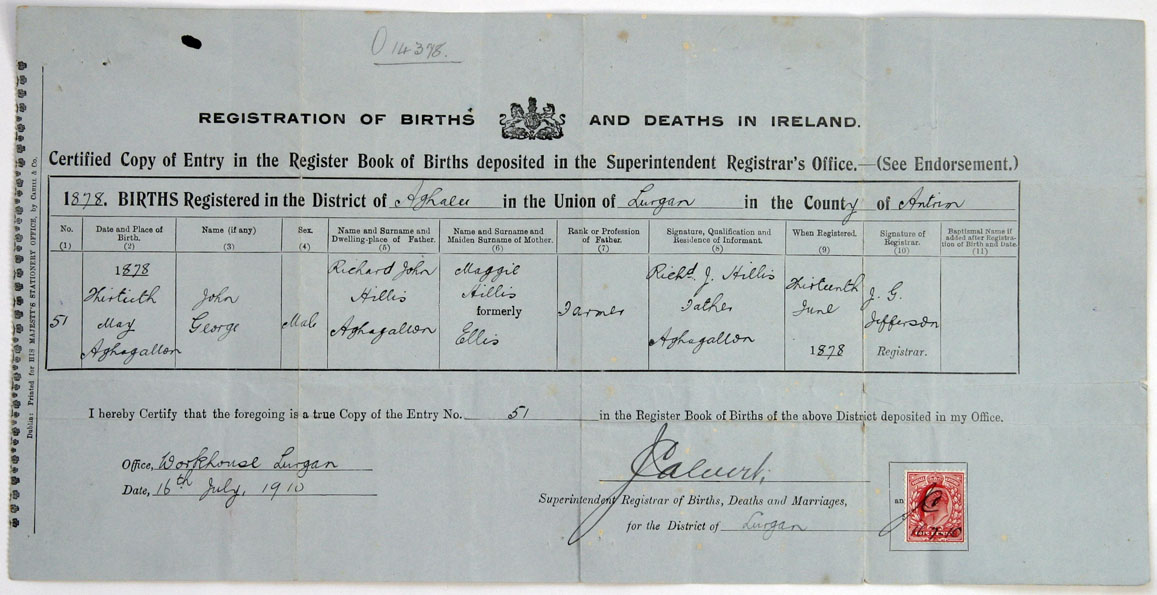 O 14378.
REGISTRATION OF BIRTHS AND DEATHS IN IRELAND.
Certified Copy of Entry in the Register Book of Births deposited in the Superintendent Registrar's Office.—(See Endorsement.)
1878. BIRTHS Registered in the District of Aghalee in the Union of Lurgan in the County of Antrim
No. (1)
Date and Place of Birth. (2)
Name (if any) (3)
Sex. (4)
Name and Surname and Dwelling-place of Father. (5)
Name and Surname and Maiden Surname of Mother. (6)
Rank or Profession of Father. (7)
Signature, Qualification and Residence of Informant. (8)
When Registered. (9)
Signature of Registrar. (10)
Baptismal Name if added after Registration of Birth and Date. (11)
51
1878 Thirtieth May Aghagallon
John George
Male
Richard John Hillis Aghagallon
Maggie Hillis formerly Ellis
Farmer
Richd. J. Hillis Father Aghagallon
Thirteenth June 1878
J. G. Jefferson Registrar.
I hereby Certify that the foregoing is a true Copy of the Entry No. 51 in the Register Book of Births of the above District deposited in my Office.
Office, Workhouse Lurgan
Date, 16th July, 1910
JCalvert.
Superintendent Registrar of Births, Deaths and Marriages,
for the District of Lurgan
Dublin: Printed for HIS MAJESTY'S STATIONERY OFFICE, by CAHILL & Co.